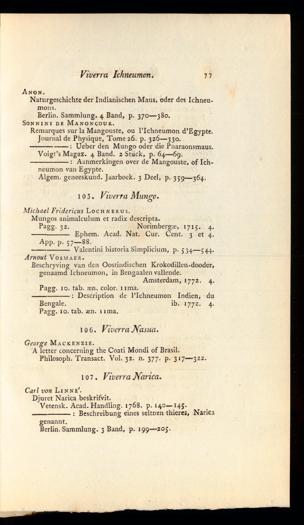 Viverra Ichneumon. 77
ANON.
Naturgeschichte der Indianischen Maus, oder des Ichneu-
mons.
Berlin. Sammlung. 4 Band, p. 370—380.
SONNINI DE MANONCOUR.
Remarques sur la Mangouste, ou l'Ichneumon d'Egypte.
Journal de Physique, Tome 26. p. 326—330.
———: Ueber den Mungo oder die Pharaonsmaus.
Voigt's Magaz. 4 Band. 2 Stück, p. 64—69.
———: Aanmerkingen over de Mangouste, of Ich-
neumon van Egypte.
Algem. geneeskund. Jaarboek. 3 Deel, p. 359—364.
105. Viverra Mungo.
Michael Fridericus LOCHNERUS.
Mungos animalculum et radix descripta.
Pagg. 32. Norimbergæ, 1715. 4.
——— Ephem. Acad. Nat. Cur. Cent. 3 et 4.
App. p. 57—88.
——— Valentini historia Simplicium, p. 534—544.
Arnout VOSMAER.
Beschryving van den Oostindischen Krokodillen-dooder,
genaamd Ichneumon, in Bengaalen vallende.
Amsterdam, 1772. 4.
Pagg. 10. tab. æn. color. 11ma.
———: Description de l'Ichneumon Indien, du
Bengale. ib. 1772. 4.
Pagg. 10. tab. æn. 11ma.
106. Viverra Nasua.
George MACKENZIE.
A letter concerning the Coati Mondi of Brasil.
Philosoph. Transact. Vol. 32. n. 377. p. 317—322.
107. Viverra Narica.
Carl von LINNE'.
Djuret Narica beskrifvit.
Vetensk. Acad. Handling. 1768. p. 140—145.
———: Beschreibung eines seltnen thieres, Narica
genannt.
Berlin. Sammlung. 3 Band, p. 199—205.